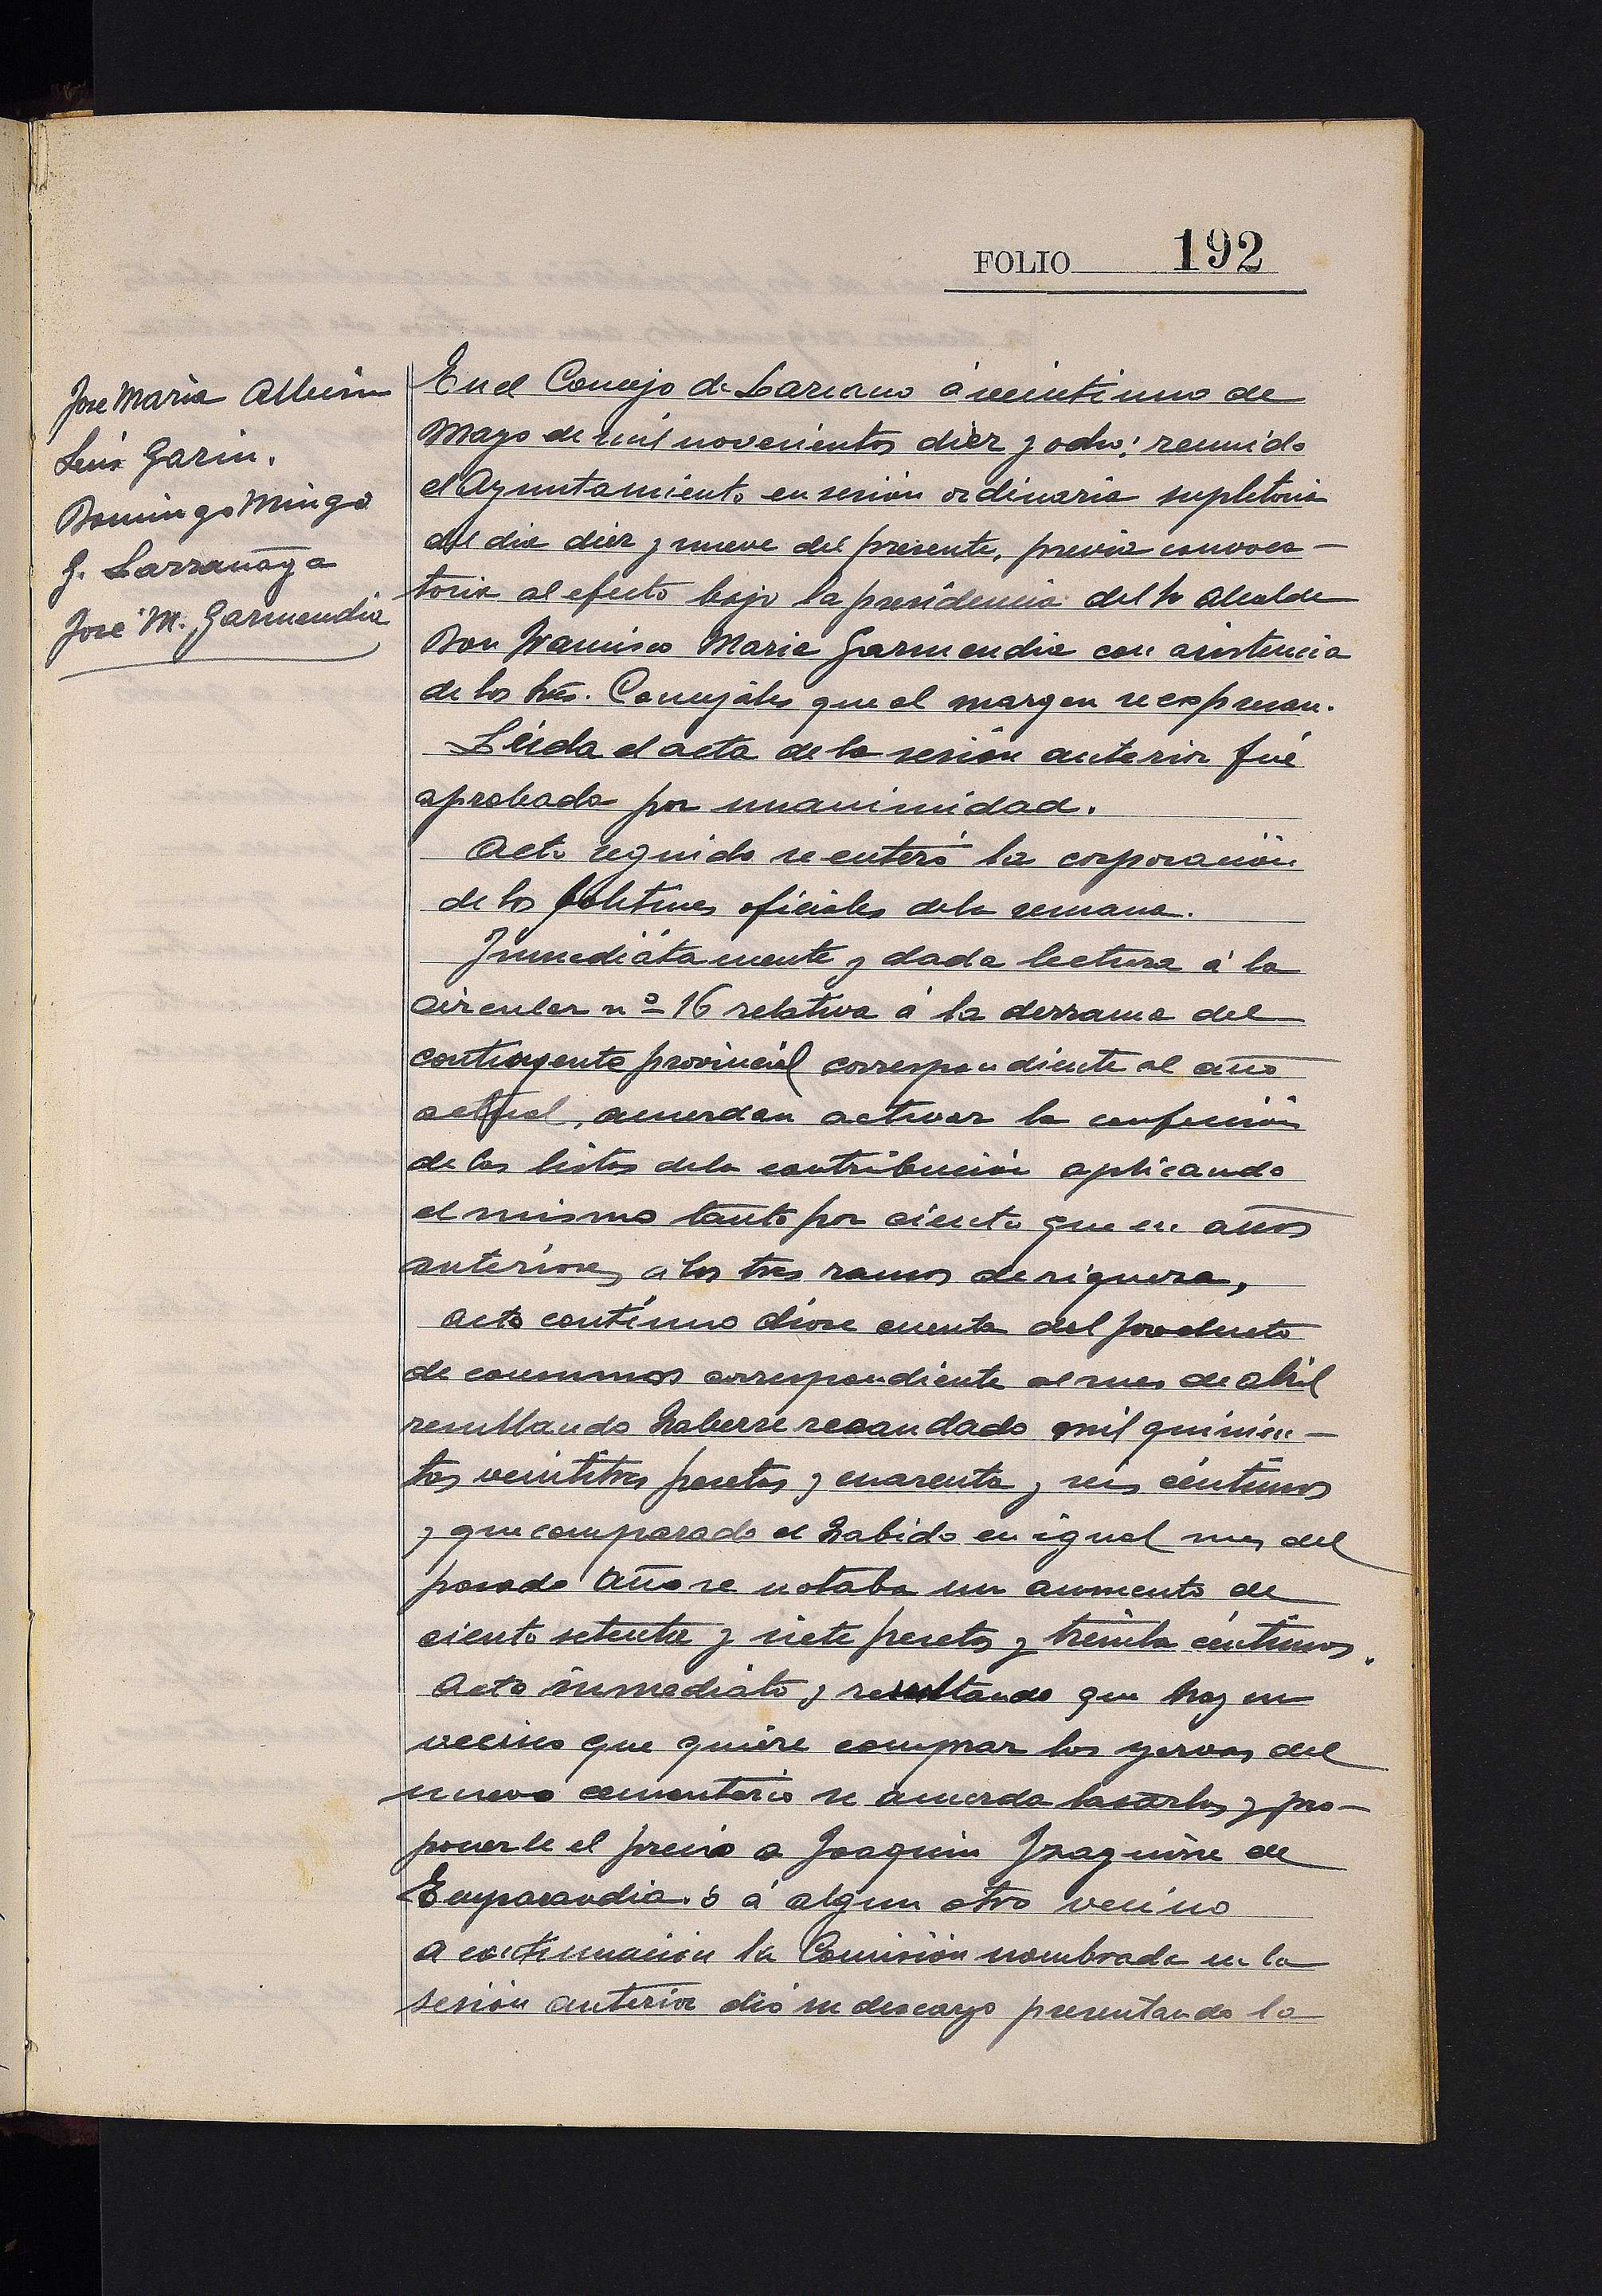 FOLIO 192
Jose Maria Albisu
Luis Garin.
Domingo Mingo
J. Larrañaga
José M. Garmendia
En el Concejo de Lazcano á veintiuno de
Mayo de mil novecientos diez y ocho; reunido
el Ayuntamiento en sesion ordinaria supletoria
del dia diez y nueve del presente, previa convoca-
toria al efecto bajo la presidencia del Sr Alcalde
Don Francisco Maria Garmendia con asistencia
de los Srs. Concejales que al margen se expresan.
Léida el acta de la sesión anterior fué
aprobada por unanimidad.
Acto seguido se enteró la corporación
de los Boletines oficiales dela semana.
Inmediátamente y dada lectura á la
circular nº 16 relativa á la derrama del
contingente provincial correspondiente al año
actual, acuerdan activar la confección
de las listas dela contribución aplicando
el mismo tanto por ciento que en años
anteriores a los tres ramos de riqueza,
Acto contínuo dióse cuenta del producto
de consumos correspondiente al mes de abril
resultando haberse recaudado mil quinien-
tas veintitres pesetas y cuarenta y seis céntimos
y que comparado el habido en igual mes del
pasado año se notaba un aumento de
ciento setenta y siete pesetas y treinta céntimos.
Acto inmediato y resultando que hay un
vecino que quiere comprar los yervas del
nuevo cementerio se acuerda tasarlos y pro-
ponerle el precio a Joaquin Izaguirre de
Emparandia. ó á algun otro vecino
A continuación la Comisión nombrada en la
sesión anterior dió su descargo presentando la